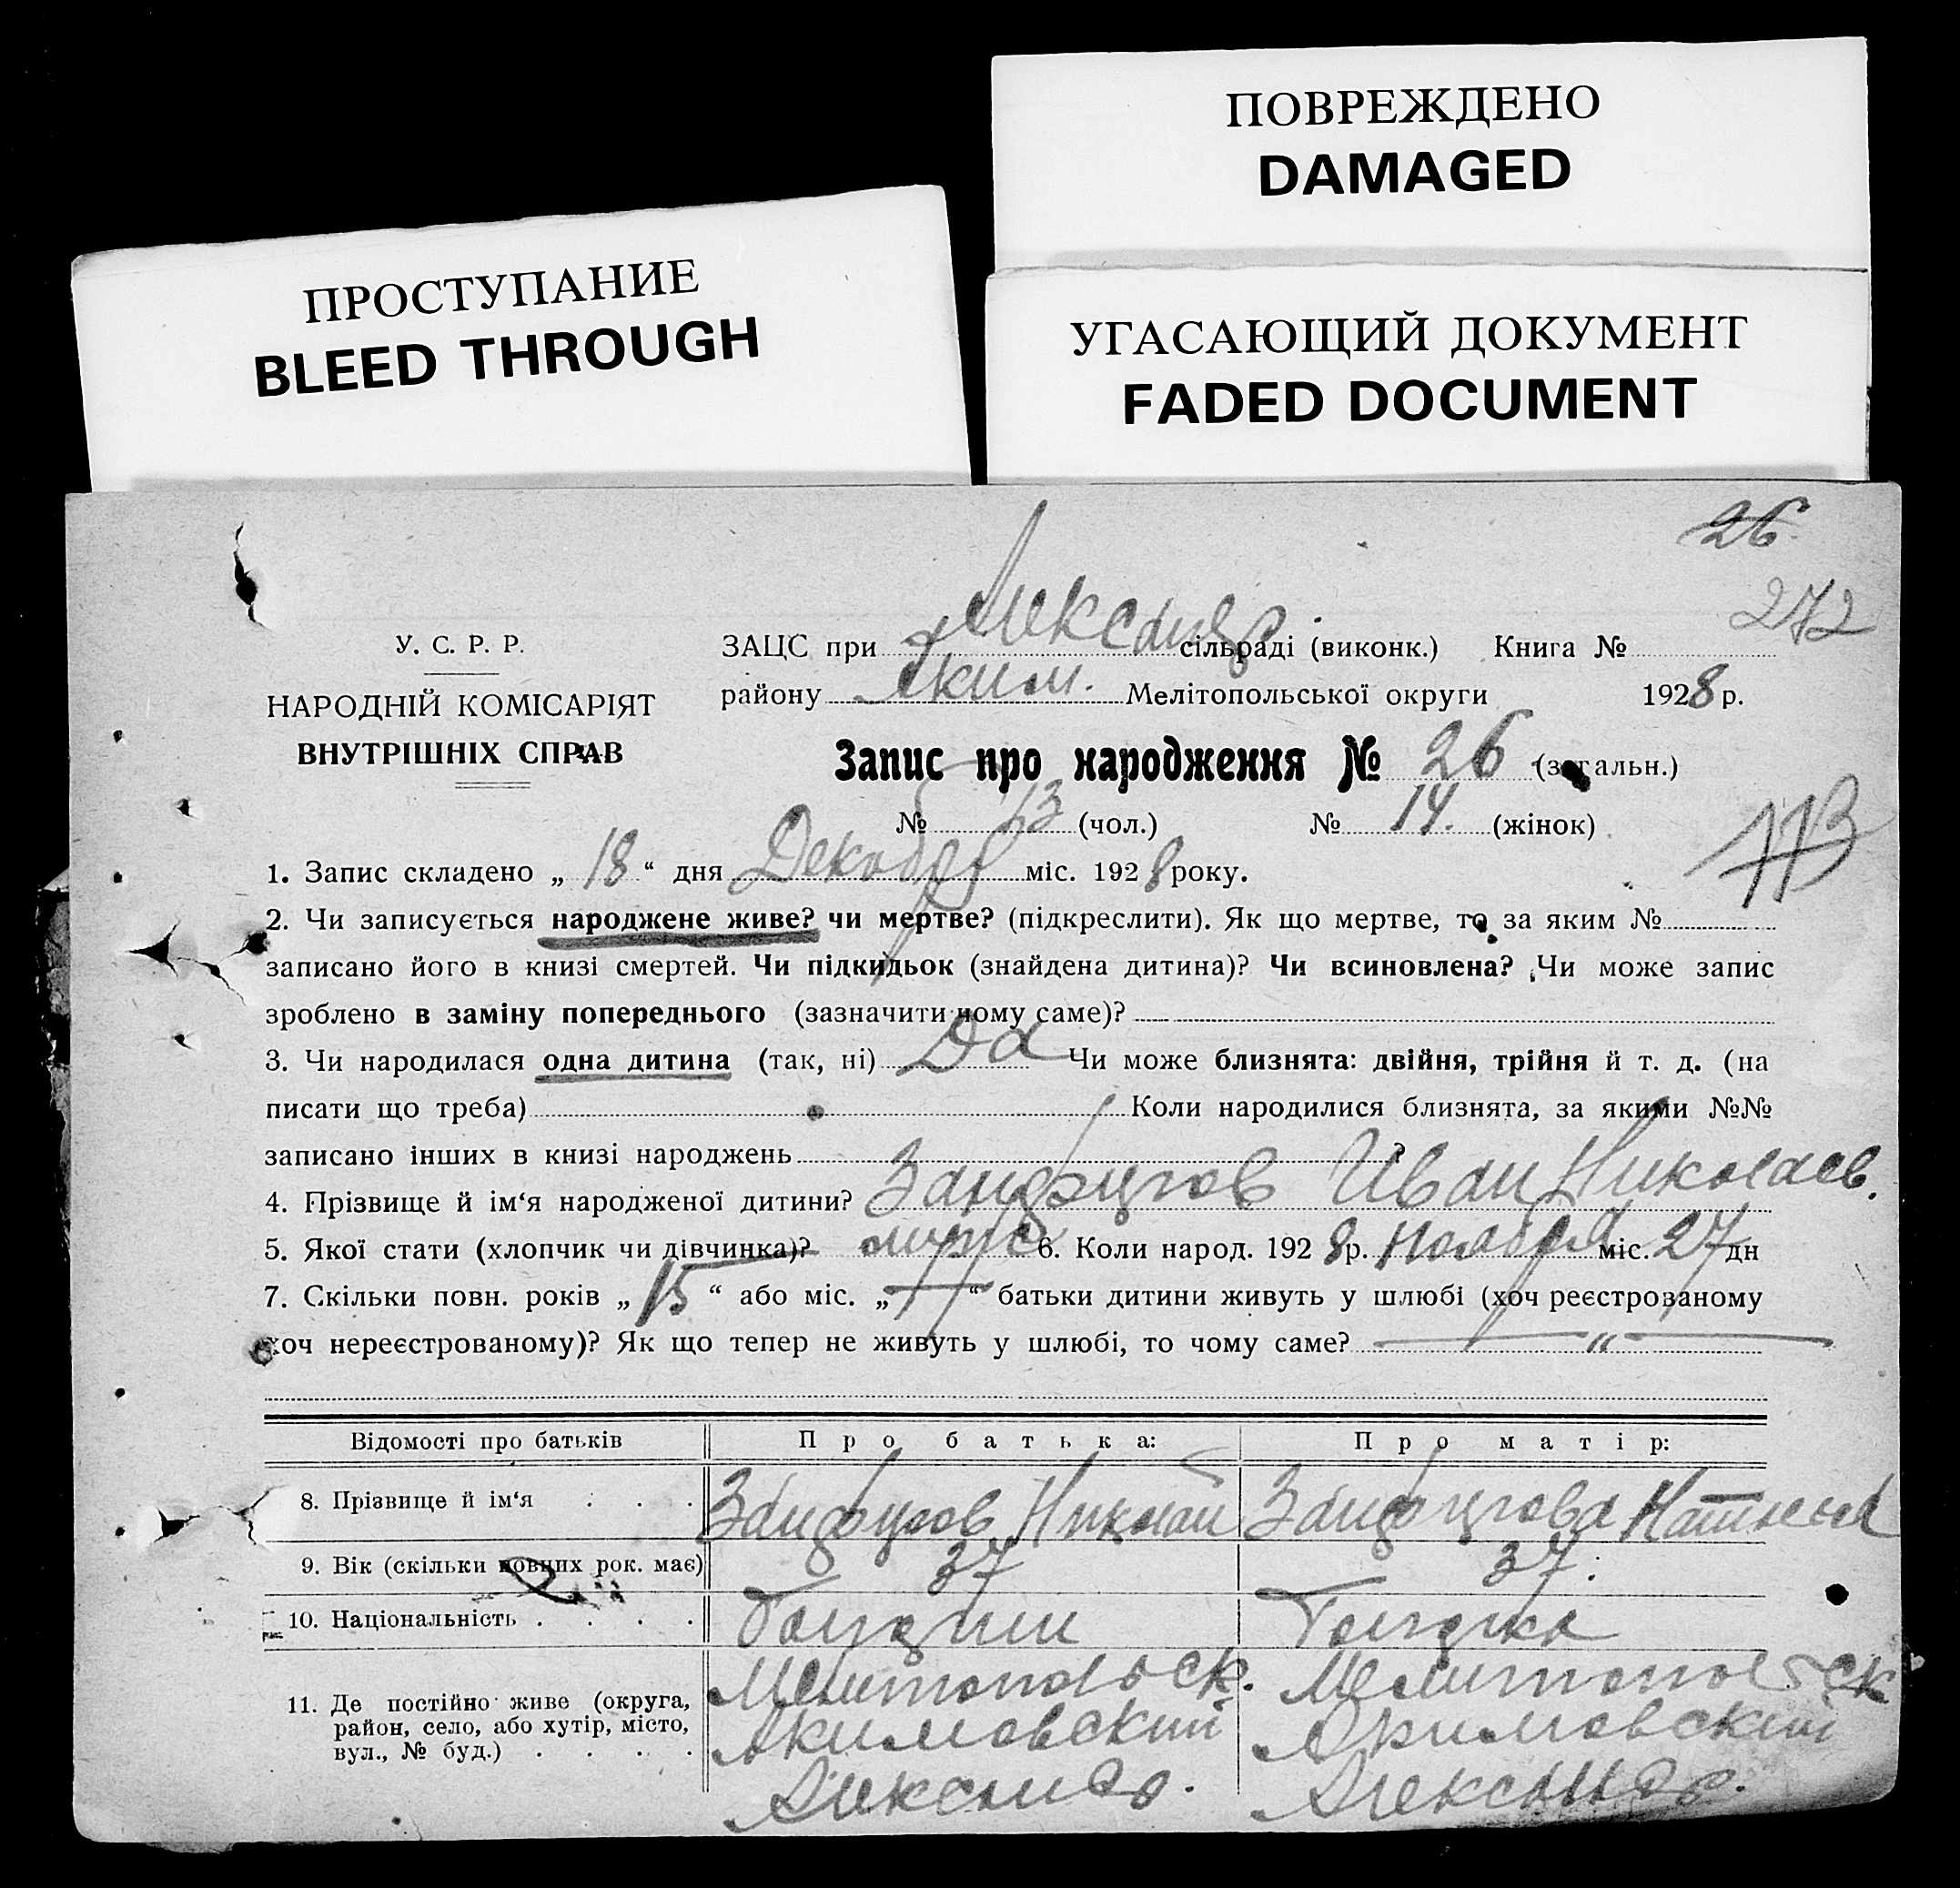 ПОВРЕЖДЕНО
DAMAGED
ПРОСТУПАНИЕ
BLEED THROUGH
УГАСАЮЩИЙ ДОКУМЕНТ
FADED DOCUMENT
26
272
У. С. Р. Р.
НАРОДНІЙ КОМІСАРІЯТ
ВНУТРІШНІХ СПРАВ
ЗАЦС при Александр. сільраді (виконк.) Книга №
району Аким. Мелітопольської округи 1928 р.
Запис про народження № 26 (загальн.)
№ 13 (чол.) № 14. (жінок)
113
1. Запис складено „ 18 “ дня Декабря міс. 1928 року.
2. Чи записується народжене живе? чи мертве? (підкреслити). Як що мертве, то за яким №
записано його в книзі смертей. Чи підкидьок (знайдена дитина)? Чи всиновлена? Чи може запис
зроблено в заміну попереднього (зазначити чому саме)?
3. Чи народилася одна дитина (так, ні) Да Чи може близнята: двійня, трійня й т. д. (на
писати що треба) Коли народилися близнята, за якими №№
записано інших в книзі народжень ?
4. Прізвище й ім‘я народженої дитини? Иван Николаев.
5. Якої стати (хлопчик чи дівчинка)? 6. Коли народ. 1928 р. Ноября міс. 27 дн
7. Скільки повн. років „ 15 “ або міс. „ “ батьки дитини живуть у шлюбі (хоч реєстрованому
хоч нереєстрованому)? Як що тепер не живуть у шлюбі, то чому саме? “
Відомості про батьків Про батька: Про матір:
8. Прізвище й ім‘я . . . Николай
9. Вік (скільки повних рок. має) 37 37.
10. Національність . . . .
11. Де постійно живе (округа, район, село, або хутір, місто, вул., № буд.) . . . .
Мелитопольск. Мелитопольск
Акимовский Акимовский
Александр. Александр.